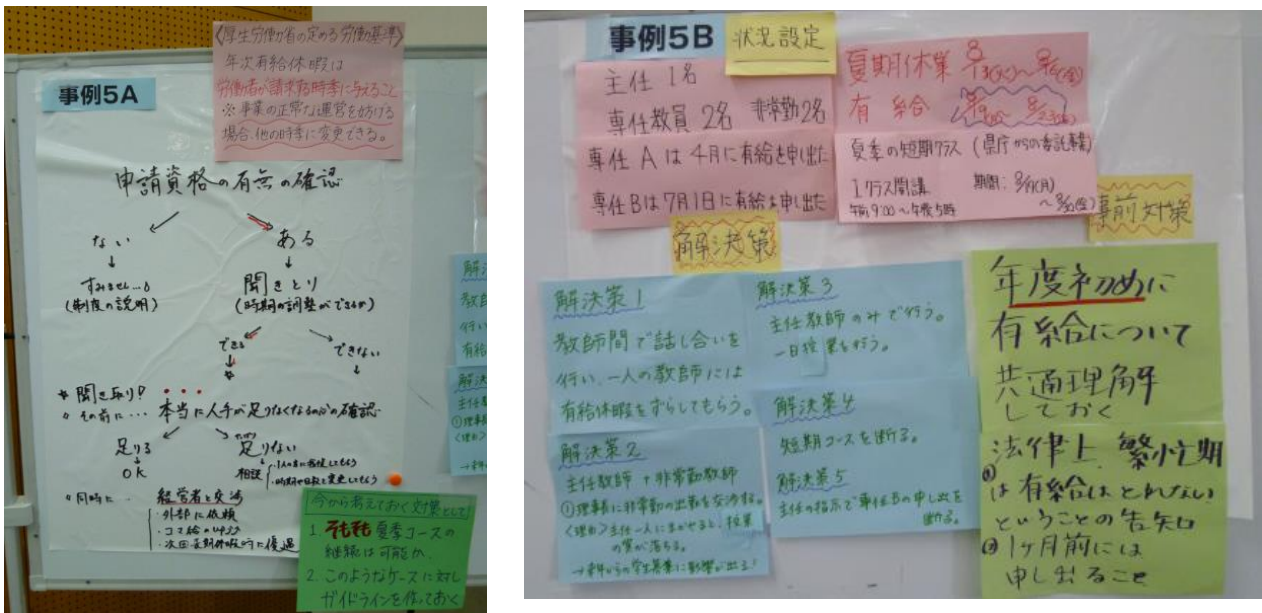 事例5A
〈厚生労働省の定める労働基準〉
年次有給休暇は
労働者が請求する時季に与えること
※事業の正常な運営を妨げる
場合、他の時季に変更できる。
申請資格の有無の確認
ない
ある
↓
↓
すみません…。
(制度の説明)
聞きとり
(時期の調整ができるか)
できる
できない
* 聞き取り
その前に… 本当に人手が足りなくなるのかの確認
足りる
足りない
↓
OK
相談
・時期や日数を変更してもらう
同時に…
経営者と交渉
・外部に依頼
今から考えておく対策として
1. そもそも夏季コースの
継続は可能か。
2. このようなケースに対し
ガイドラインを作っておく
事例5B
状況設定
主任 1名
専任教員 2名 非常勤2名
専任Aは4月に有給を申し出た
専任Bは7月1日に有給を申し出た
夏期休業
有給
夏季の短期クラス (県庁からの委託事業)
1クラス開講
午前9:00~午後5時
期間:
解決策
事前対策
解決策1
教師間で話し合いを
行い、一人の教師には
有給休暇をずらしてもらう。
解決策2
主任教師 + 非常勤教師
①理事長に非常勤の出勤を交渉する。
<理由>主任一人にまかせると、授業
の質が落ちる。
解決策3
主任教師のみで行う。
一日授業を行う。
解決策4
短期コースを断る。
解決策5
主任の指示で専任Bの申し出を
断る。
年度初めに
有給について
共通理解
しておく
法律上、繁忙期
①は有給はとれない
ということの告知
②1ヶ月前には
申し出ること